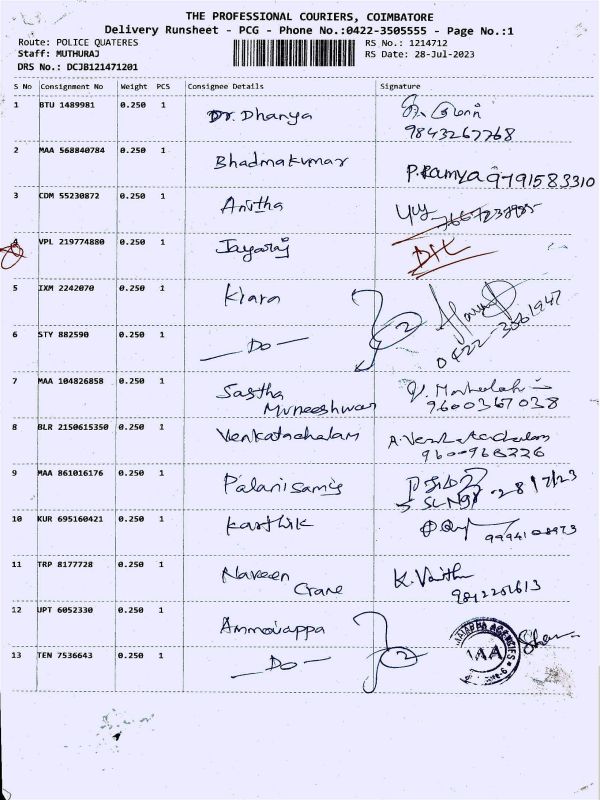 THE PROFESSIONAL COURIERS, COIMBATORE
Delivery Runsheet - PCG - Phone No.:0422-3505555 - Page No.:1
Route: POLICE QUATERES RS No.: 1214712
Staff: MUTHURAJ RS Date: 28-Jul-2023
DRS No.: DCJB121471201
S No Consignment No Weight PCS Consignee Details Signature
1 BTU 1489981 0.250 1 Dr. Dhanya
9843267768
2 MAA 568840784 0.250 1 Bhadmakumar P.Ramya 9791583310
3 CDM 55230872 0.250 1 Anitha
4 VPL 219774880 0.250 1 Jayaraj
5 IXM 2242070 0.250 1 Kiara
0422-3501947
6 STY 882590 0.250 1 — Do — 2
7 MAA 104826858 0.250 1 Sastha
Muneeshwar 9600367038
8 BLR 2150615350 0.250 1 Venkatachalam A.Venkatachalam
9600968226
9 MAA 861016176 0.250 1 Palanisamy 28/7/23
10 KUR 695160421 0.250 1 Karthik
11 TRP 8177728 0.250 1 Naveen
Crane
12 UPT 6052330 0.250 1 Ammaiappa
13 TEN 7536643 0.250 1 — Do — 2